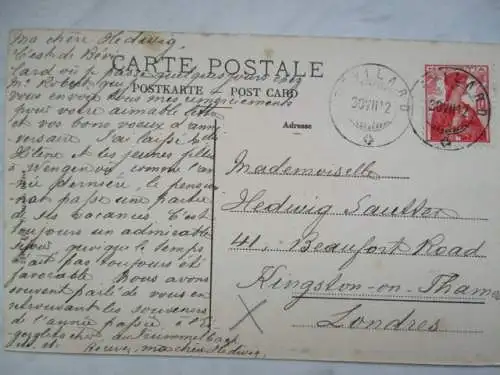 Ma chère Hedwig
C'est de Bévi-
lard où je passe quelques jours chez
Mr Robert que je
vous envoie tous mes remerciements
pour votre aimable lettre
et vos bons voeux d'anni-
versaire. J'ai laissé
Hélène et les jeunes filles
à Wengen où comme l'an-
née dernière, le pension-
nat passe une partie
de ses vacances. C'est
toujours un admirable
séjour quoique le temps
n'ait pas toujours été
favorable. Nous avons
souvent parlé de vous en
retrouvant les souvenirs
de l'année passée à l'Ei-
gergletscher, au Trümmelbach
etc. etc. Recevez, ma chère Hedwig,
CARTE POSTALE
POSTKARTE POST CARD
Adresse
BÉVILARD
30 VII 12
BÉVILARD
30 VII 12
Mademoiselle
Hedwig Sautter
41, Beaufort Road
Kingston-on-Thames
Londres